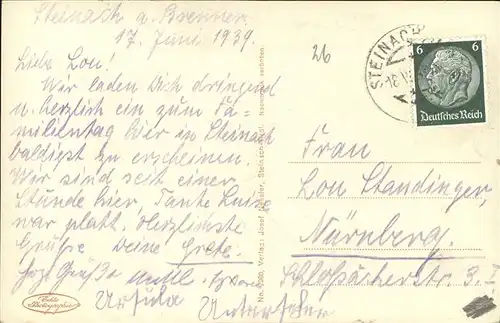 Steinach a. Brenner
17. Juni 1939.
Liebe Lou!
Wir laden Dich dringend
u. herzlich ein zum Fa-
milientag hier in Steinach
baldigst zu erscheinen.
Wir sind seit einer
Stunde hier, Tante Luise
war platt. Herzlichste
Grüsse Deine Grete.
Herzl. Grüße
Ursula
Echte Photographie
26
STEINACH
6 6
Deutsches Reich
Frau
Lou Standinger,
Nürnberg.
Verlag: Josef
Nachdruck verboten.